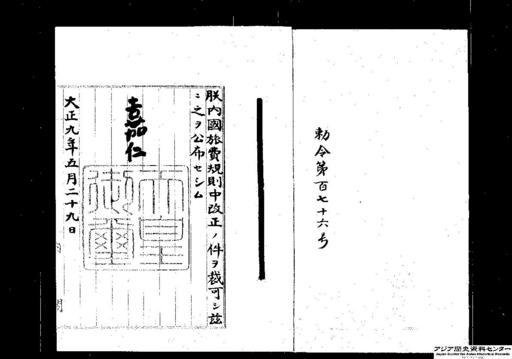 勅令第百七十六号
朕内國旅費規則中改正ノ件ヲ裁可シ茲
ニ之ヲ公布セシム
嘉仁
天皇
御璽
大正九年五月二十九日
内閣
アジア歴史資料センター
Japan Center for Asian Historical Records